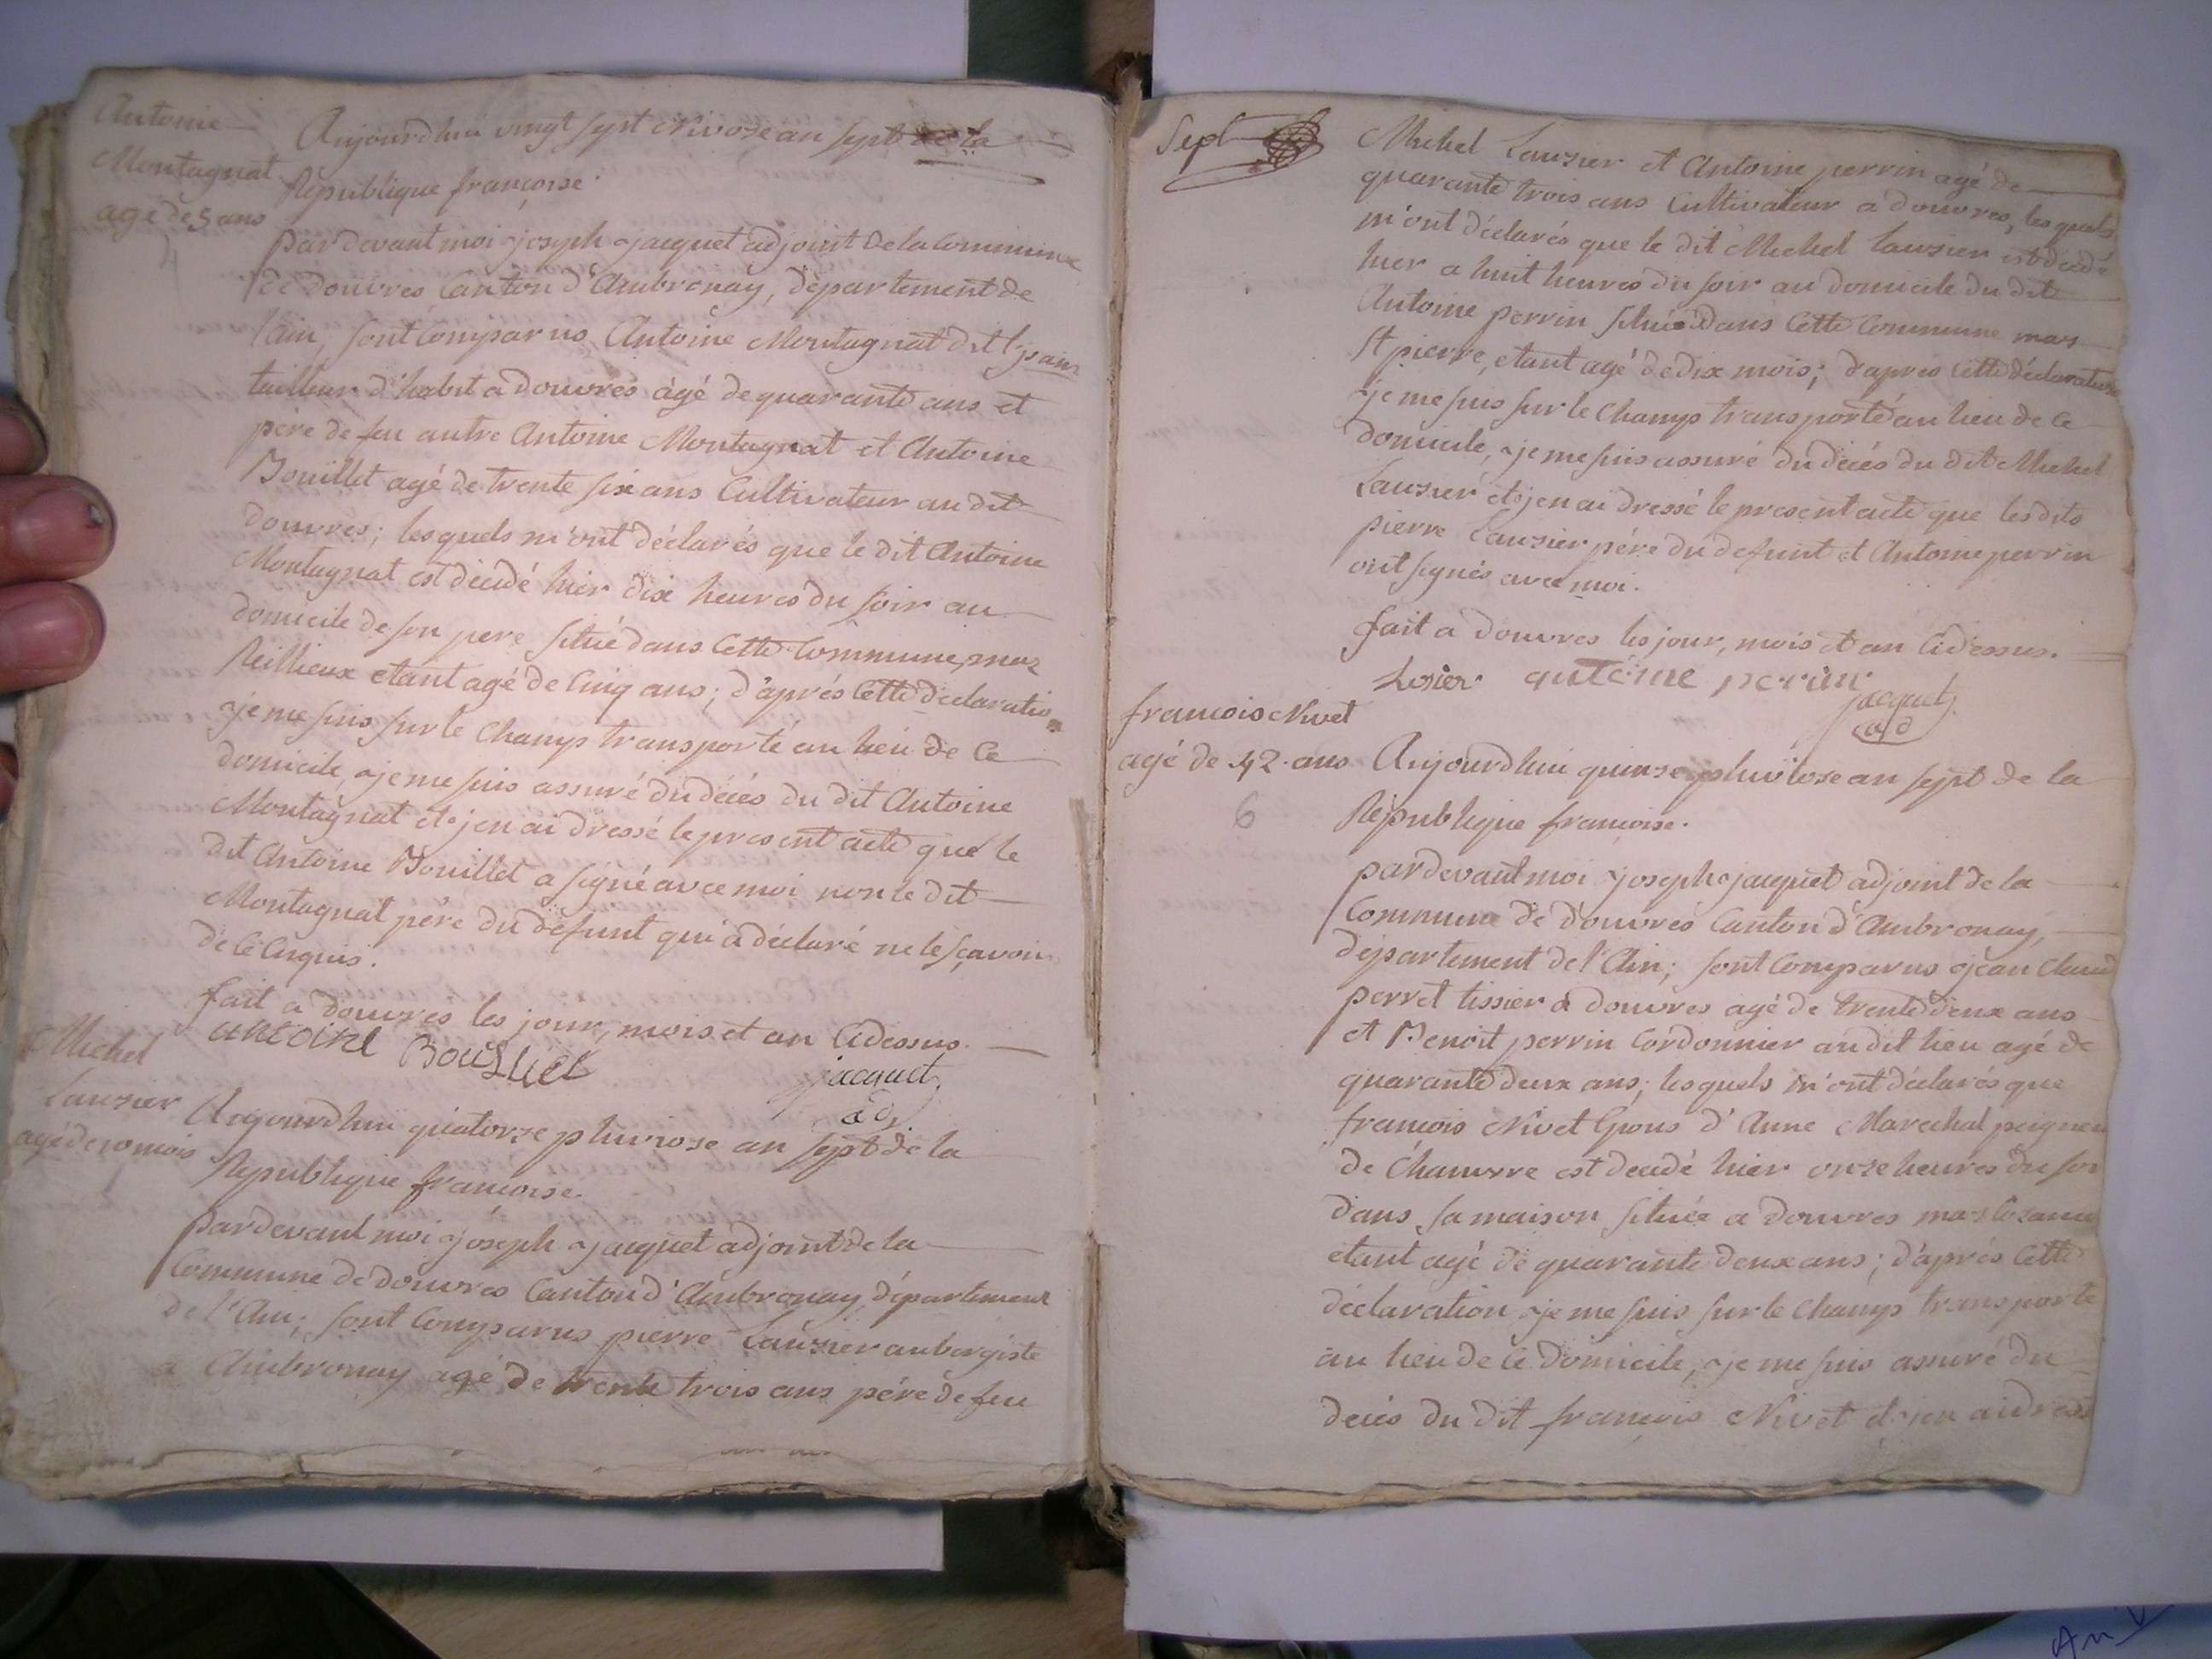 Antoine
Montagnat
agé de 5 ans
4
Aujourdhui vingt sept Nivose an sept de la
République françoise.
pardevant moi joseph jacquet adjoint de la Commune
de douvres Canton d'Ambronay, département de
l'ain, sont Comparus Antoine Montagnat dit
tailleur d'habit a douvres agé de quarante ans et
pere de feu autre Antoine Montagnat et Antoine
Bouillet agé de trente six ans Cultivateur au dit
douvres; lesquels m'ont déclarés que le dit Antoine
Montagnat est décédé hier dix heures du soir au
domicile de son pere situé dans Cette Commune, mas
Reillieux etant agé de Cinq ans; d'après Cette déclaratio
je me suis sur le Champs transporté au lieu de Ce
domicile, je me suis assuré du décés du dit Antoine
Montagnat et j'en ai dressé le present acte que le
dit Antoine Bouillet a signé avec moi non le dit
Montagnat père du défunt qui a déclaré ne le sçavoir
de Ce Enquis.
fait a douvres les jour, mois et an Cidessus.
antoine Bouillet
jacquet
adj.
Michel
Lauzier
agé de 10 mois
Aujourdhui quatorze pluviose an sept de la
République françoise.
pardevant moi joseph jacquet adjoint de la
Commune de douvres Canton d'Ambronay, département
de l'Ain; sont Comparus pierre Lauzier aubergiste
a Ambronay agé de trente trois ans pére de feu
Sept
Michel Lauzier et Antoine perrin agé de
quarante trois ans Cultivateur a douvres, lesquels
m'ont déclarés que le dit Michel lauzier est décédé
hier a huit heures du soir au domicile du dit
Antoine perrin situé dans Cette Commune mas
St pierre, etant agé de dix mois; d'après Cette déclaration
je me suis sur le Champs transporté au lieu de Ce
domicile, je me suis assuré du décés du dit Michel
Lauzier et j'en ai dressé le present acte que les dits
pierre Lauzier pére du defunt et Antoine perrin
ont signés avec moi.
fait a douvres les jour, mois et an Cidessus.
Losier antoine perin
jacquet
adj
francois Nivet
agé de 42 ans
6
Aujourdhui quinze pluviose an sept de la
République françoise.
pardevant moi joseph jacquet adjoint de la
Commune de douvres Canton d'Ambronay,
département de l'Ain; sont Comparus jean Claud
perret tissier a douvres agé de trente deux ans
et Benoit perrin Cordonnier audit lieu agé de
quarante deux ans; lesquels m'ont déclarés que
francois Nivet Epous d'Anne Marechal peigneu
de Chanvre est decédé hier onze heures du soir
dans sa maison située a douvres mas
etant agé de quarante deux ans; d'après Cette
déclaration je me suis sur le Champs transporté
au lieu de Ce domicile, je me suis assuré du
décés du dit francois Nivet et j'en ai dressé
An V